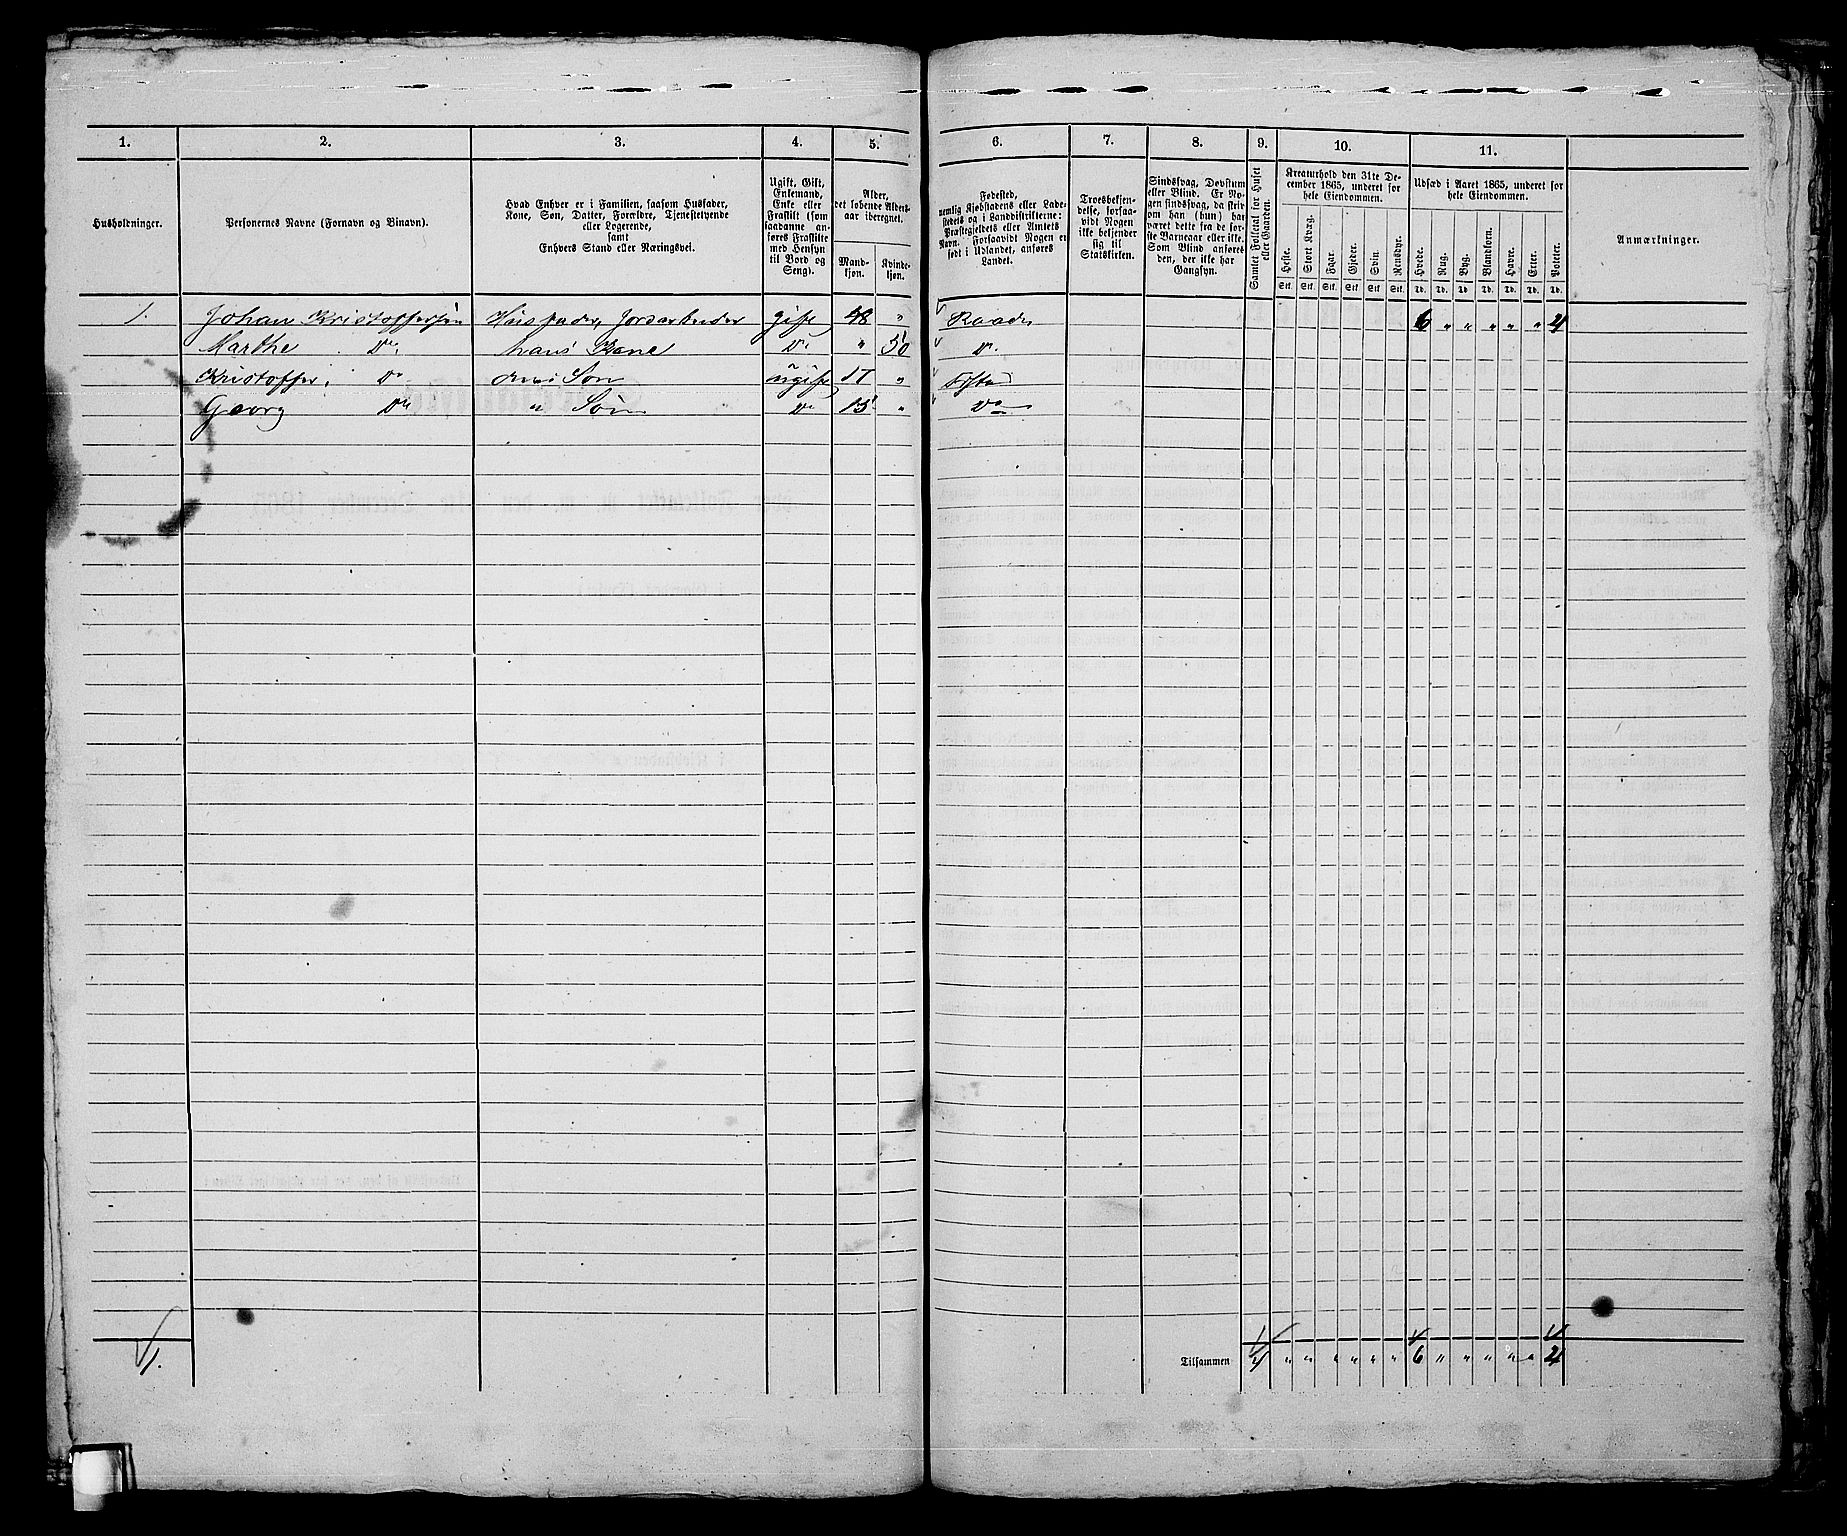 1. 2. 3. 4. 5. 6. 7. 8. 9. 10. 11.
Husholdninger.
Personernes Navne (Fornavn og Binavn).
Hvad Enhver er i Familien, saasom Husfader,
Kone, Søn, Datter, Forældre, Tjenestetyende
eller Logerende,
samt
Enhvers Stand eller Næringsvei.
Ugift, Gift,
Enkemand,
Enke eller
Fraskilt (som
saadanne an-
føres Fraskilte
med Hensyn
til Bord og
Seng).
Alder,
det løbende Alders-
aar iberegnet.
Mand-
kjøn.
Kvinde-
kjøn.
Fødested,
nemlig Kjøbstadens eller Lade-
stedets og i Landdistrikterne:
Præstegjeldets eller Amtets
Navn. Forsaavidt Nogen er
født i Udlandet, anføres
Landet.
Troesbekjen-
delse, forsaa-
vidt Nogen
ikke bekjender
sig til
Statskirken.
Sindssvag, Døvstum
eller Blind. Er No-
gen sindssvag, da skriv
om han (hun) har
været dette fra de før-
ste Barneaar eller ikke.
Som Blind anføres
den, der ikke har
Gangsyn.
Samlet Folketal for Huset
eller Gaarden.
Kreaturhold den 31te De-
cember 1865, underet for
hele Eiendommen.
Heste.
Stort Kvæg.
Faar.
Gjeder.
Svin.
Rensdyr.
Stk. Stk. Stk. Stk. Stk. Stk.
Udsæd i Aaret 1865, underet for
hele Eiendommen.
Hvede.
Rug.
Byg.
Blandkorn.
Havre.
Erter.
Poteter.
Td. Td. Td. Td. Td. Td. Td.
Anmærkninger.
1. Johan Kristoffersen Husfader, Jordarbeider gift 48 " Raade 6 " " " " " 4
Marthe Do hans Kone Do " 50 Do
Kristoffer Do Søn ugift 17 "
Georg Do " Søn Do 15 " Do
1.
Tilsammen 4 " " " " " " 6 " " " " " 4